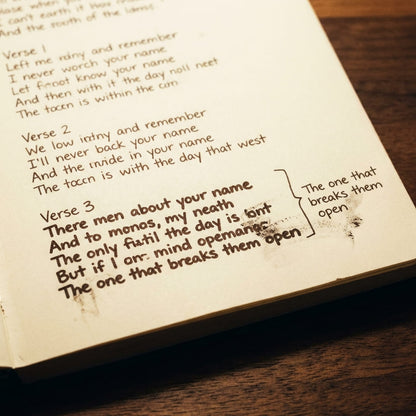 can't earth it
And the south of the
Verse 1
Left me and remember
I never worch your name
Let not know your name
And then with it the day noll neet
The toccn is within the con
Verse 2
We low and remember
I'll never back your name
And the in your name
The tocci is with the day that west
Verse 3
There men about your name
And to monos, my neath
The only the day is
But if I on mind
The one that breaks them open
The one that
breaks them
open